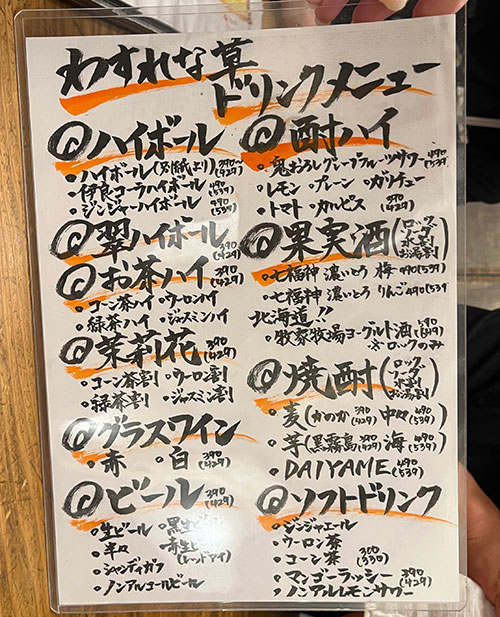 わすれな草
ドリンクメニュー
@ハイボール
・ハイボール(別紙より) 390~(429)
・伊良コーラハイボール 490(539)
・ジンジャーハイボール 490(539)
@翠ハイボール 390(429)
@お茶ハイ 390(429)
・コーン茶ハイ ・ウーロンハイ
・緑茶ハイ ・ジャスミンハイ
@茉莉花 390(429)
・コーン茶割 ・ウーロン割
・緑茶割 ・ジャスミン割
@グラスワイン
・赤 ・白 390(429)
@ビール 390(429)
・生ビール ・黒生ビール
・半々 ・赤生ビール(レッドアイ)
・シャンディガフ
・ノンアルコールビール
@酎ハイ
・鬼おろしグレープフルーツサワー 490(539)
・レモン ・プレーン ・ガリチュー
・トマト ・カルピス 390(429)
@果実酒(ロック ソーダ 水割 お湯割)
・七福神 濃いとろ 梅 490(539)
・七福神 濃いとろ りんご 490(539)
北海道!!
・牧家牧場ヨーグルト酒 590(649)
※ロックのみ
@焼酎(ロック ソーダ 水割 お湯割)
・麦(かのか 390(429) 中々 490(539))
・芋(黒霧島 390(429) 海 490(539))
・DAIYAME 490(539)
@ソフトドリンク
・ジンジャエール
・ウーロン茶
・コーン茶 300(330)
・マンゴーラッシー 390(429)
・ノンアルレモンサワー